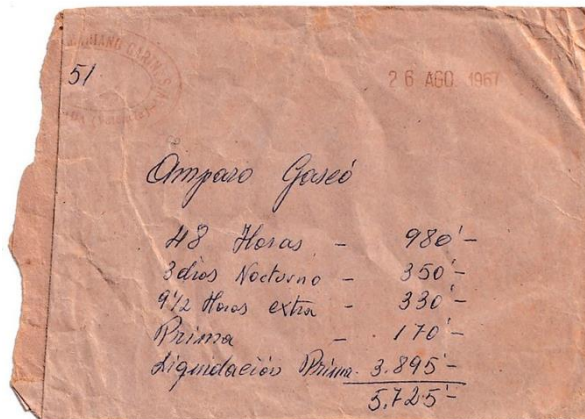 51
26 AGO. 1967
Amparo Gascó
48 Horas - 980'-
3 dias Nocturno - 350'-
9 1/2 Horas extra - 330'-
Prima - 170'-
Liquidación Prima. 3.895'-
5.725'-